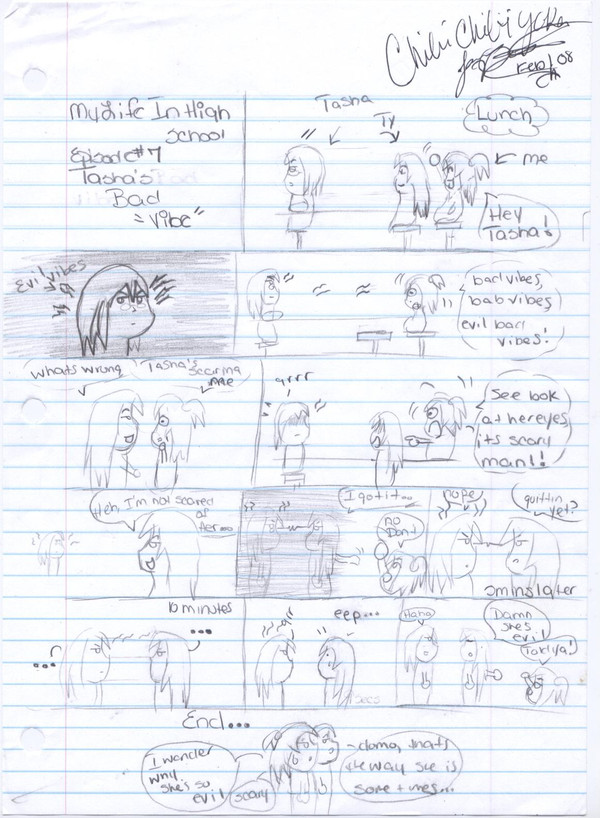 Chibi Chibi
Feb 1 08
My Life In High
School
Episode #7
Tasha's
Bad
"vibe"
Tasha
Ty
Lunch
me
Hey
Tasha!
Evil vibes
bad vibes,
bab vibes,
evil bad
vibes!
whats wrong
Tasha's
scaring
me
grrr
See look
at her eyes,
its scary
man!!
Heh, I'm not scared
of
her...
I got it...
no
Don't
nope
quittin
yet?
5mins later
10 minutes
...
...
eep...
secs
Haha
Damn
she's
evil
Told ya!
End...
I wonder
why
she's so
evil
scary
thats
the way she is
sometimes...